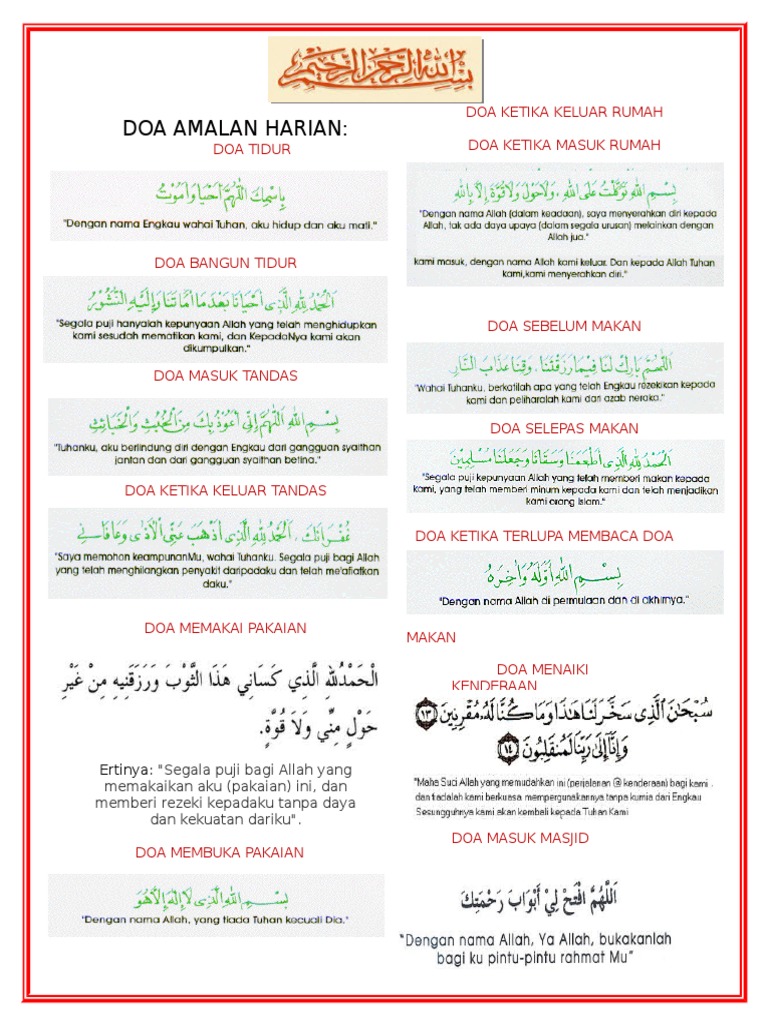 بِسْمِ اللهِ الرَّحْمٰنِ الرَّحِيْمِ
DOA AMALAN HARIAN:
DOA TIDUR
بِاسْمِكَ اللّٰهُمَّ اَحْيَا وَاَمُوْتُ
"Dengan nama Engkau wahai Tuhan, aku hidup dan aku mati."
DOA BANGUN TIDUR
اَلْحَمْدُ لِلّٰهِ الَّذِيْ اَحْيَانَا بَعْدَ مَا اَمَاتَنَا وَاِلَيْهِ النُّشُوْرُ
"Segala puji hanyalah kepunyaan Allah yang telah menghidupkan
kami sesudah mematikan kami, dan KepadaNya kami akan
dikumpulkan."
DOA MASUK TANDAS
بِسْمِ اللهِ اَللّٰهُمَّ اِنِّيْ اَعُوْذُ بِكَ مِنَ الْخُبُثِ وَالْخَبَائِثِ
"Tuhanku, aku berlindung diri dengan Engkau dari gangguan syaithan
jantan dan dari gangguan syaithan betina."
DOA KETIKA KELUAR TANDAS
غُفْرَانَكَ . اَلْحَمْدُ لِلّٰهِ الَّذِيْ اَذْهَبَ عَنِّي الْاَذٰى وَعَافَانِيْ
"Saya memohon keampunanMu, wahai Tuhanku. Segala puji bagi Allah
yang telah menghilangkan penyakit daripadaku dan telah me'afiatkan
daku."
DOA MEMAKAI PAKAIAN
الْحَمْدُ لِلهِ الَّذِي كَسَانِي هَذَا الثَّوْبَ وَرَزَقَنِيهِ مِنْ غَيْرِ
حَوْلٍ مِنِّي وَلَا قُوَّةٍ.
Ertinya: "Segala puji bagi Allah yang
memakaikan aku (pakaian) ini, dan
memberi rezeki kepadaku tanpa daya
dan kekuatan dariku".
DOA MEMBUKA PAKAIAN
بِسْمِ اللهِ الَّذِيْ لَا اِلٰهَ اِلَّا هُوَ
"Dengan nama Allah, yang tiada Tuhan kecuali Dia."
DOA KETIKA KELUAR RUMAH
DOA KETIKA MASUK RUMAH
بِسْمِ اللهِ تَوَكَّلْتُ عَلَى اللهِ ، وَلَاحَوْلَ وَلَاقُوَّةَ اِلَّا بِاللهِ
"Dengan nama Allah (dalam keadaan), saya menyerahkan diri kepada
Allah, tak ada daya upaya (dalam segala urusan) melainkan dengan
Allah jua."
kami masuk, dengan nama Allah kami keluar. Dan kepada Allah Tuhan
kami,kami menyerahkan diri."
DOA SEBELUM MAKAN
اَللّٰهُمَّ بَارِكْ لَنَا فِيْمَا رَزَقْتَنَا . وَقِنَا عَذَابَ النَّارِ
"Wahai Tuhanku, berkatilah apa yang telah Engkau rezekikan kepada
kami dan peliharalah kami dari azab neraka."
DOA SELEPAS MAKAN
اَلْحَمْدُ لِلّٰهِ الَّذِيْ اَطْعَمَنَا وَسَقَانَا وَجَعَلَنَا مُسْلِمِيْنَ
"Segala puji kepunyaan Allah yang telah memberi makan kepada
kami, yang telah memberi minum kepada kami dan telah menjadikan
kami orang Islam."
DOA KETIKA TERLUPA MEMBACA DOA
بِسْمِ اللهِ اَوَّلَهُ وَاٰخِرَهُ
"Dengan nama Allah di permulaan dan di akhirnya."
MAKAN
DOA MENAIKI
KENDERAAN
سُبْحَانَ الَّذِي سَخَّرَ لَنَا هَٰذَا وَمَا كُنَّا لَهُ مُقْرِنِينَ ١٣
وَإِنَّا إِلَىٰ رَبِّنَا لَمُنقَلِبُونَ ١٤
"Maha Suci Allah yang memudahkan ini (perjalanan @ kenderaan) bagi kami .
dan tiadalah kami berkuasa mempergunakannya tanpa kurnia dari Engkau
Sesungguhnya kami akan kembali kepada Tuhan Kami
DOA MASUK MASJID
اَللَّهُمَّ افْتَحْ لِي أَبْوَابَ رَحْمَتِكَ
"Dengan nama Allah, Ya Allah, bukakanlah
bagi ku pintu-pintu rahmat Mu"